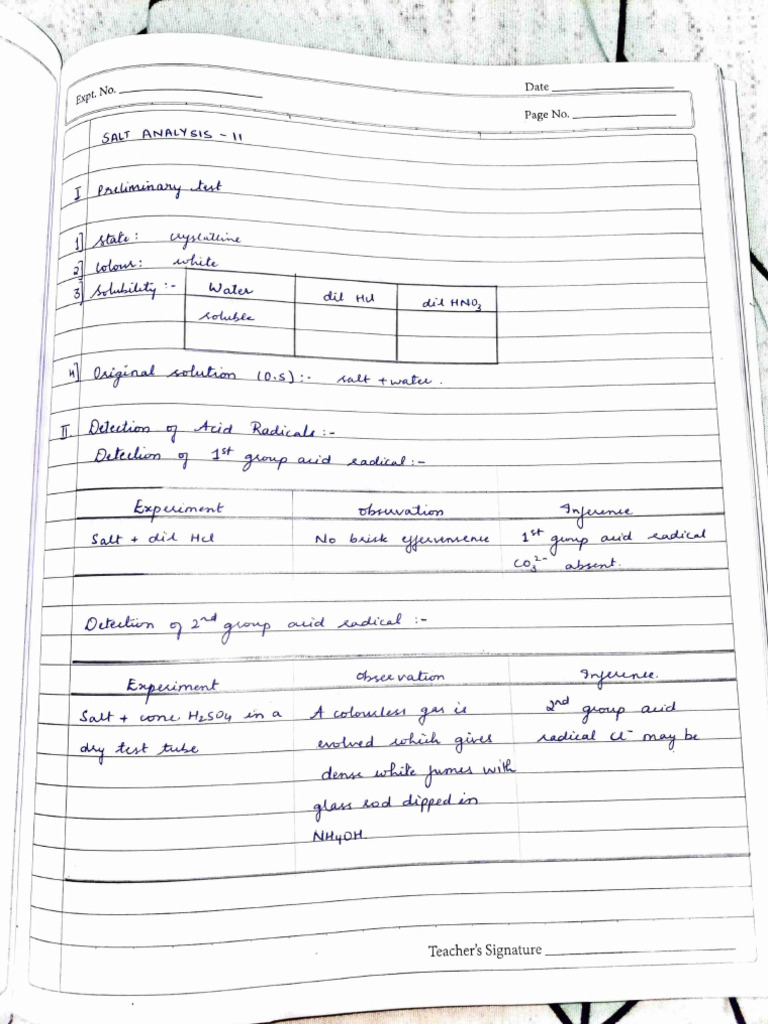 Expt. No.
Date
Page No.
SALT ANALYSIS - 11
I Preliminary test
1] State: crystalline
2] colour: white
3] Solubility :- Water dil Hcl dil HNO3
soluble
4] Original solution (O.S) :- salt + water.
II. Detection of Acid Radicals :-
Detection of 1st group acid radical :-
Experiment observation Inference
Salt + dil Hcl No brisk effervensence 1st group acid radical
CO3^2- absent.
Detection of 2nd group acid radical :-
Experiment observation Inference.
Salt + conc. H2SO4 in a A colourless gas is 2nd group acid
dry test tube evolved which gives radical Cl- may be
dense white fumes with
glass rod dipped in
NH4OH
Teacher's Signature